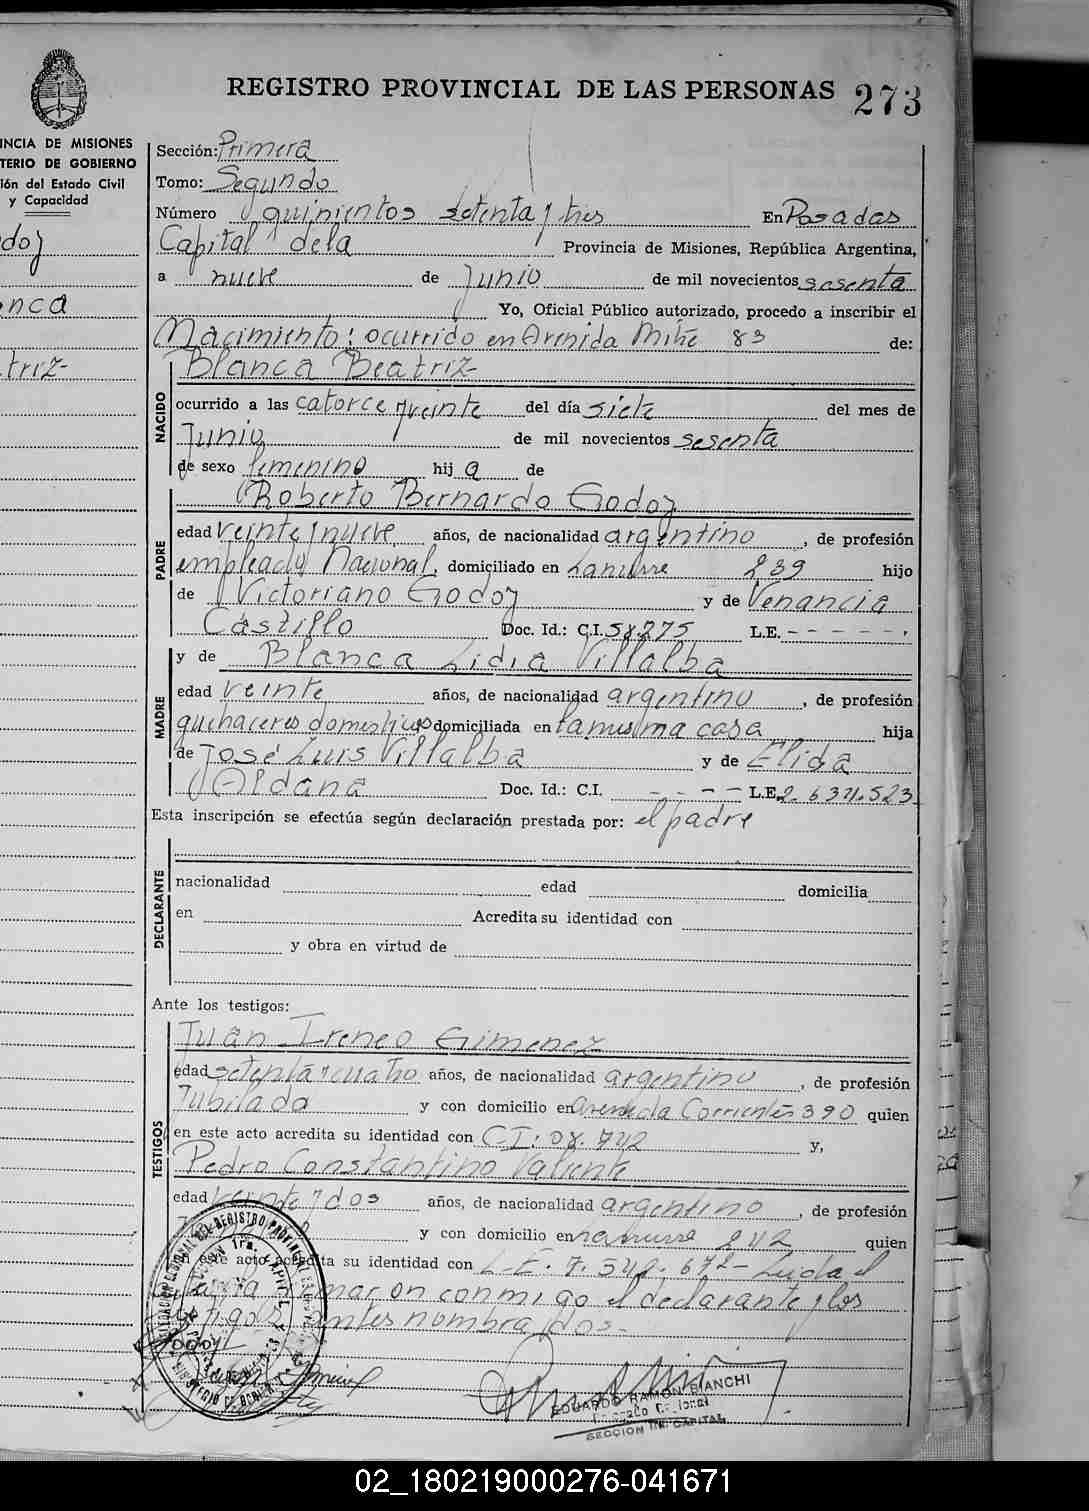 REGISTRO PROVINCIAL DE LAS PERSONAS 273
INCIA DE MISIONES
TERIO DE GOBIERNO
ión del Estado Civil
y Capacidad
doy
nca
triz
Sección: Primera
Tomo: Segundo
Número quinientos setenta y tres En Posadas
Capital dela Provincia de Misiones, República Argentina,
a nueve de Junio de mil novecientos sesenta
Yo, Oficial Público autorizado, procedo a inscribir el
Nacimiento: ocurrido en Avenida Mitre 83 de:
Blanca Beatriz
NACIDO
ocurrido a las catorce y veinte del día siete del mes de
Junio de mil novecientos sesenta
de sexo femenino hija de
Roberto Bernardo Godoy
PADRE
edad veinte y nueve años, de nacionalidad argentino, de profesión
empleado Nacional, domiciliado en 239 hijo
de Victoriano Godoy y de Venancia
Castillo Doc. Id.: C.I. 58275 L.E. - - - - - -
y de Blanca Lidia Villalba
MADRE
edad veinte años, de nacionalidad argentino, de profesión
quehaceres domesticos domiciliada en la misma casa hija
de José Luis Villalba y de Elida
Aldana Doc. Id.: C.I. - - - - L.E. 2.634.523
Esta inscripción se efectúa según declaración prestada por: el padre
DECLARANTE
nacionalidad edad domicilia
en Acredita su identidad con
y obra en virtud de
Ante los testigos:
Juan Ireneo Gimenez
TESTIGOS
edad setenta y cuatro años, de nacionalidad argentino, de profesión
Jubilado y con domicilio en Avenida Corrientes 390 quien
en este acto acredita su identidad con C.I. 08.742 y,
Pedro Constantino Valiente
edad veinte y dos años, de nacionalidad argentino, de profesión
y con domicilio en 242 quien
en este acto acredita su identidad con L.E. 7.542.672- Leida el
acta firmaron conmigo el declarante y los
testigos antes nombrados.-
EDUARDO RAMON BIANCHI
SECCION 1ra. CAPITAL
02_180219000276-041671